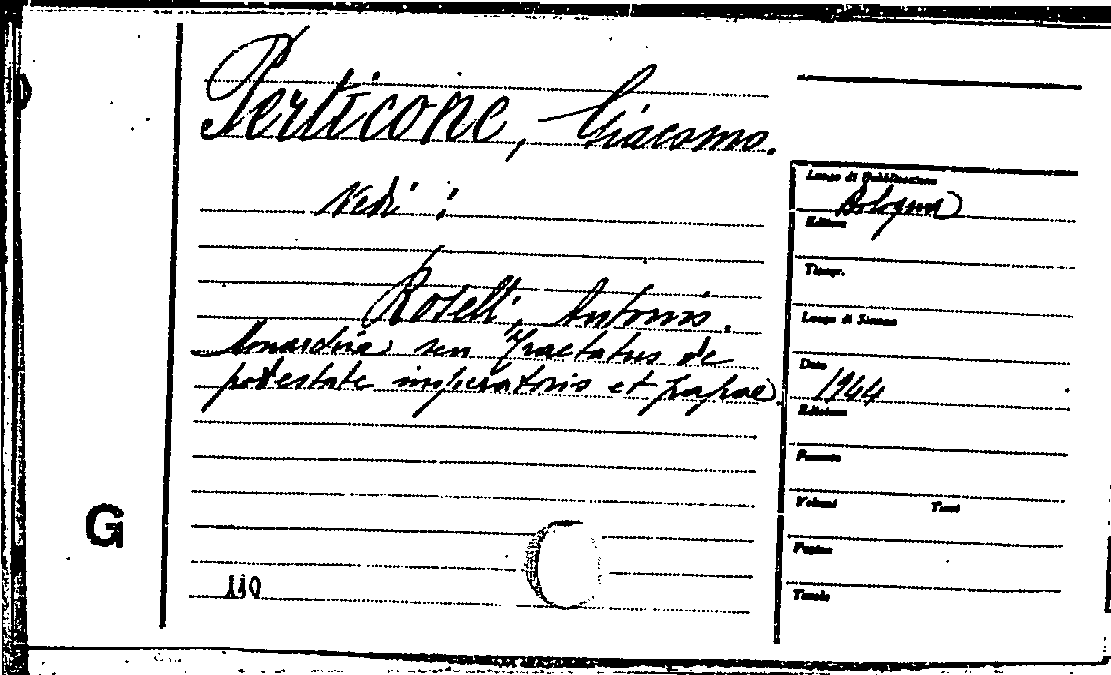 Perticone, Giacomo.
Vedi :
Roselli, Antonio.
Monarchia seu Tractatus de
potestate imperatoris et papae.
G
110
Luogo di Pubblicazione
Bologna
Editore
Tipogr.
Luogo di Stampa
Data
1944
Edizione
Formato
Volumi Tomi
Pagine
Tavole